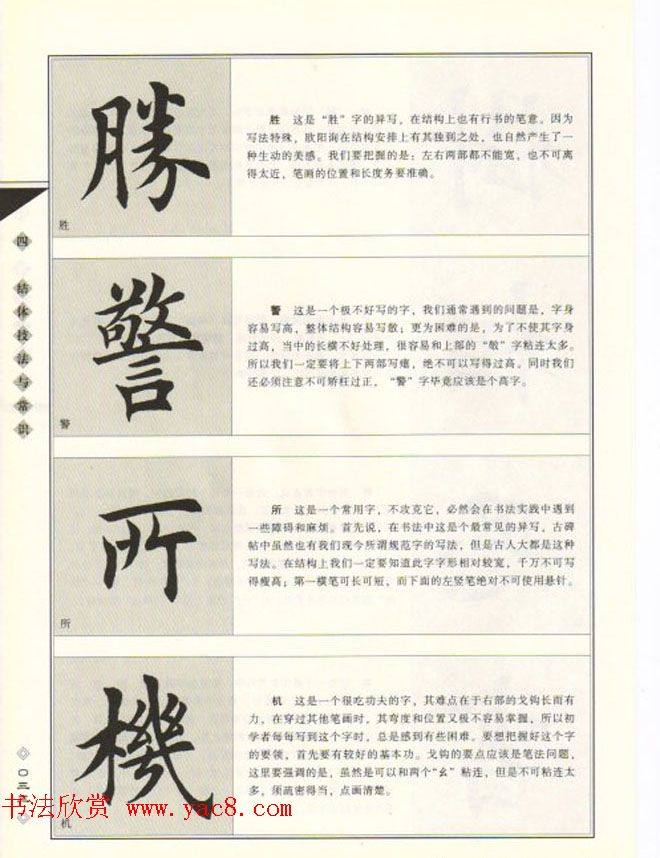 勝
胜
胜 这是“胜”字的异写，在结构上也有行书的笔意。因为
写法特殊，欧阳询在结构安排上有其独到之处，也自然产生了一
种生动的美感。我们要把握的是：左右两部都不能宽，也不可离
得太近，笔画的位置和长度务要准确。
警
警
警 这是一个极不好写的字，我们通常遇到的问题是，字身
容易写高，整体结构容易写散；更为困难的是，为了不使其字身
过高，当中的长横不好处理，很容易和上部的“敬”字粘连太多。
所以我们一定要将上下两部写矮，绝不可以写得过高。同时我们
还必须注意不可矫枉过正，“警”字毕竟应该是个高字。
所
所
所 这是一个常用字，不攻克它，必然会在书法实践中遇到
一些障碍和麻烦。首先说，在书法中这是个最常见的异写，古碑
帖中虽然也有我们现今所谓规范字的写法，但是古人大都是这种
写法。在结构上我们一定要知道此字字形相对较宽，千万不可写
得瘦高；第一横笔可长可短，而下面的左竖笔绝对不可使用悬针。
機
机
机 这是一个很吃功夫的字，其难点在于右部的戈钩长而有
力，在穿过其他笔画时，其弯度和位置又极不容易掌握，所以初
学者每每写到这个字时，总是感到有些困难。要想把握好这个字
的要领，首先要有较好的基本功。戈钩的要点应该是笔法问题，
这里要强调的是，虽然是可以和两个“幺”粘连，但是不可粘连太
多，须疏密得当，点画清楚。
四 结体技法与常识
书法欣赏 www.yac8.com